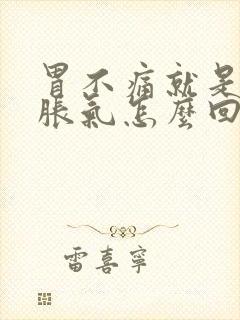 胃不痛就是
脹氣怎麼回
雷喜寧